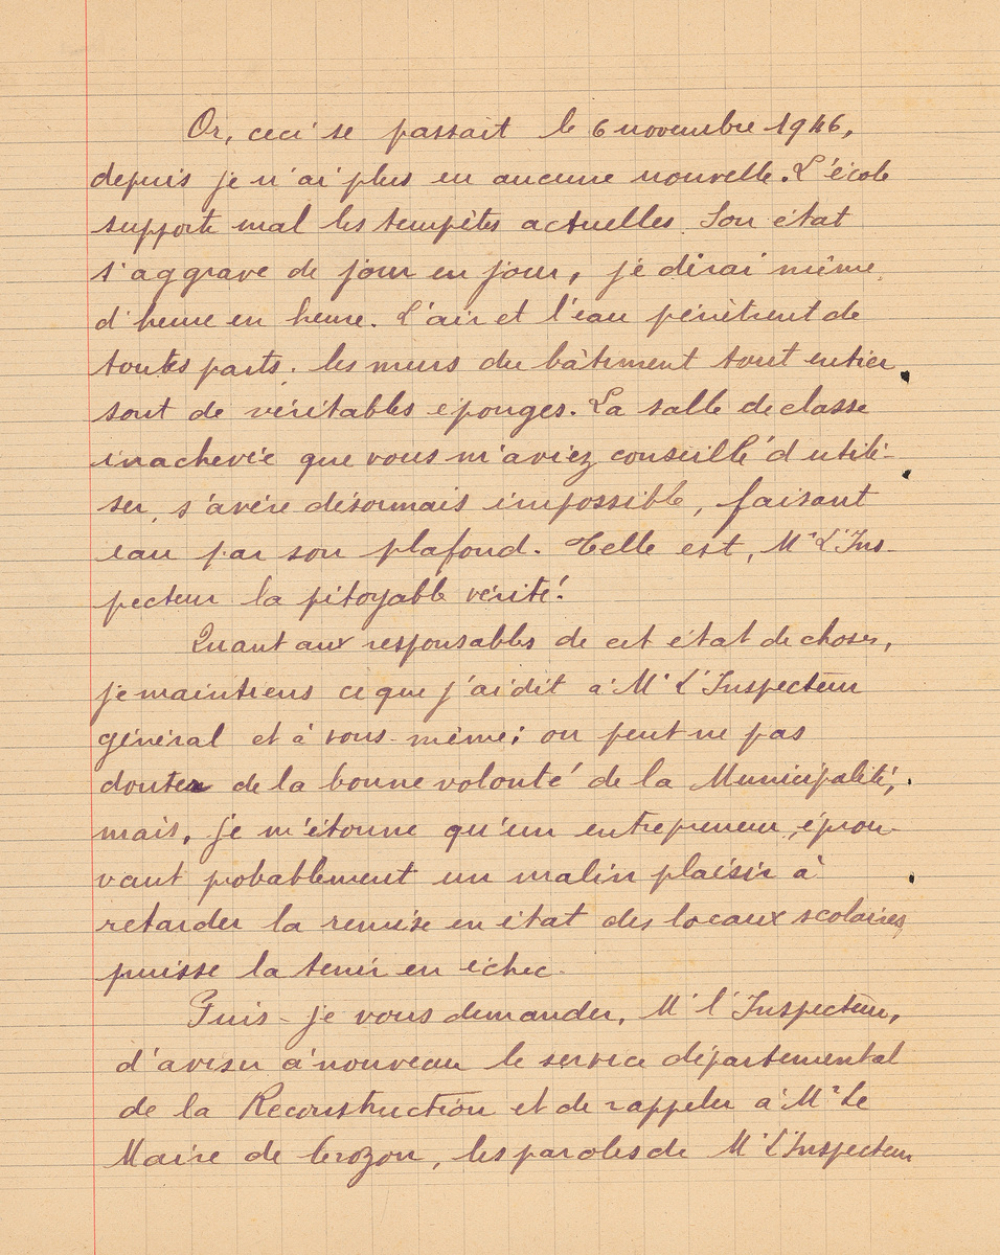 Or, ceci se passait le 6 novembre 1946,
depuis je n'ai plus eu aucune nouvelle. L'école
supporte mal les tempêtes actuelles. Son état
s'aggrave de jour en jour, je dirai même
d'heure en heure. L'air et l'eau pénètrent de
toutes parts. les murs du bâtiment tout entier
sont de véritables éponges. La salle de classe
inachevée que vous m'aviez conseillé d'utili-
ser, s'avère désormais impossible, faisant
eau par son plafond. Telle est, Mr L'Ins-
pecteur la pitoyable vérité!
Quant aux responsables de cet état de choses,
je maintiens ce que j'ai dit à Mr L'Inspecteur
général et à vous-même; on peut ne pas
douter de la bonne volonté de la Municipalité,
mais, je m'étonne qu'un entrepreneur, éprou-
vant probablement un malin plaisir à
retarder la remise en état des locaux scolaires
puisse la tenir en échec.
Puis-je vous demander, Mr l'Inspecteur,
d'aviser à nouveau le service départemental
de la Reconstruction et de rappeler à Mr Le
Maire de Crozon, les paroles de Mr L'Inspecteur